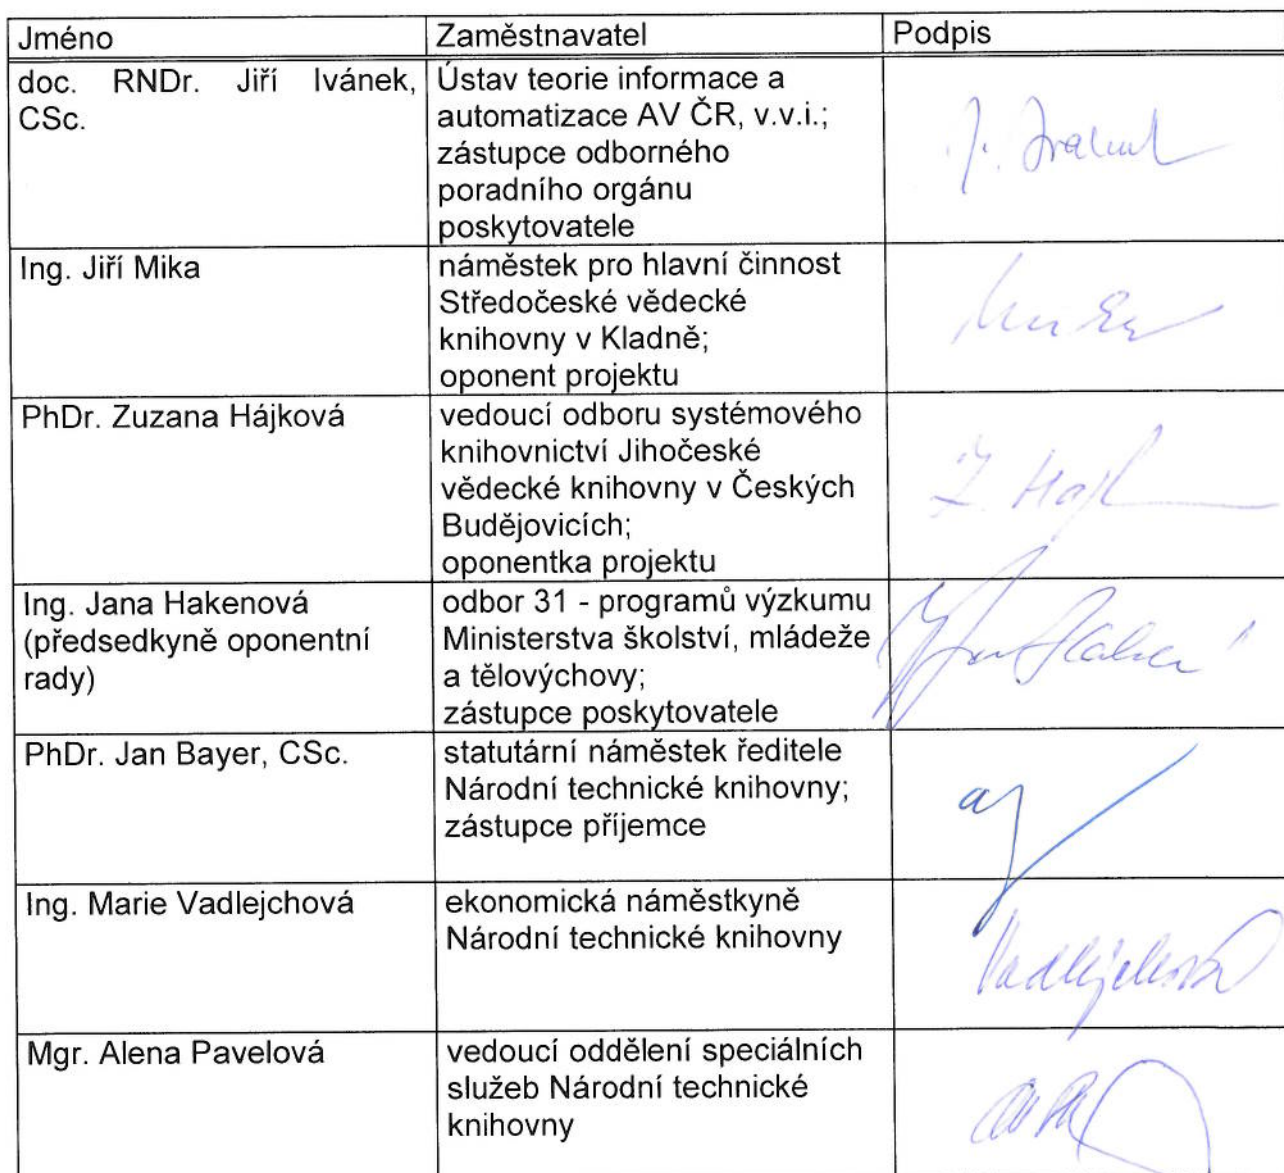 Jméno Zaměstnavatel Podpis
doc. RNDr. Jiří Ivánek,
CSc.
Ústav teorie informace a
automatizace AV ČR, v.v.i.;
zástupce odborného
poradního orgánu
poskytovatele
Ing. Jiří Mika
náměstek pro hlavní činnost
Středočeské vědecké
knihovny v Kladně;
oponent projektu
PhDr. Zuzana Hájková
vedoucí odboru systémového
knihovnictví Jihočeské
vědecké knihovny v Českých
Budějovicích;
oponentka projektu
Ing. Jana Hakenová
(předsedkyně oponentní
rady)
odbor 31 - programů výzkumu
Ministerstva školství, mládeže
a tělovýchovy;
zástupce poskytovatele
PhDr. Jan Bayer, CSc.
statutární náměstek ředitele
Národní technické knihovny;
zástupce příjemce
Ing. Marie Vadlejchová
ekonomická náměstkyně
Národní technické knihovny
Vadlejchová
Mgr. Alena Pavelová
vedoucí oddělení speciálních
služeb Národní technické
knihovny